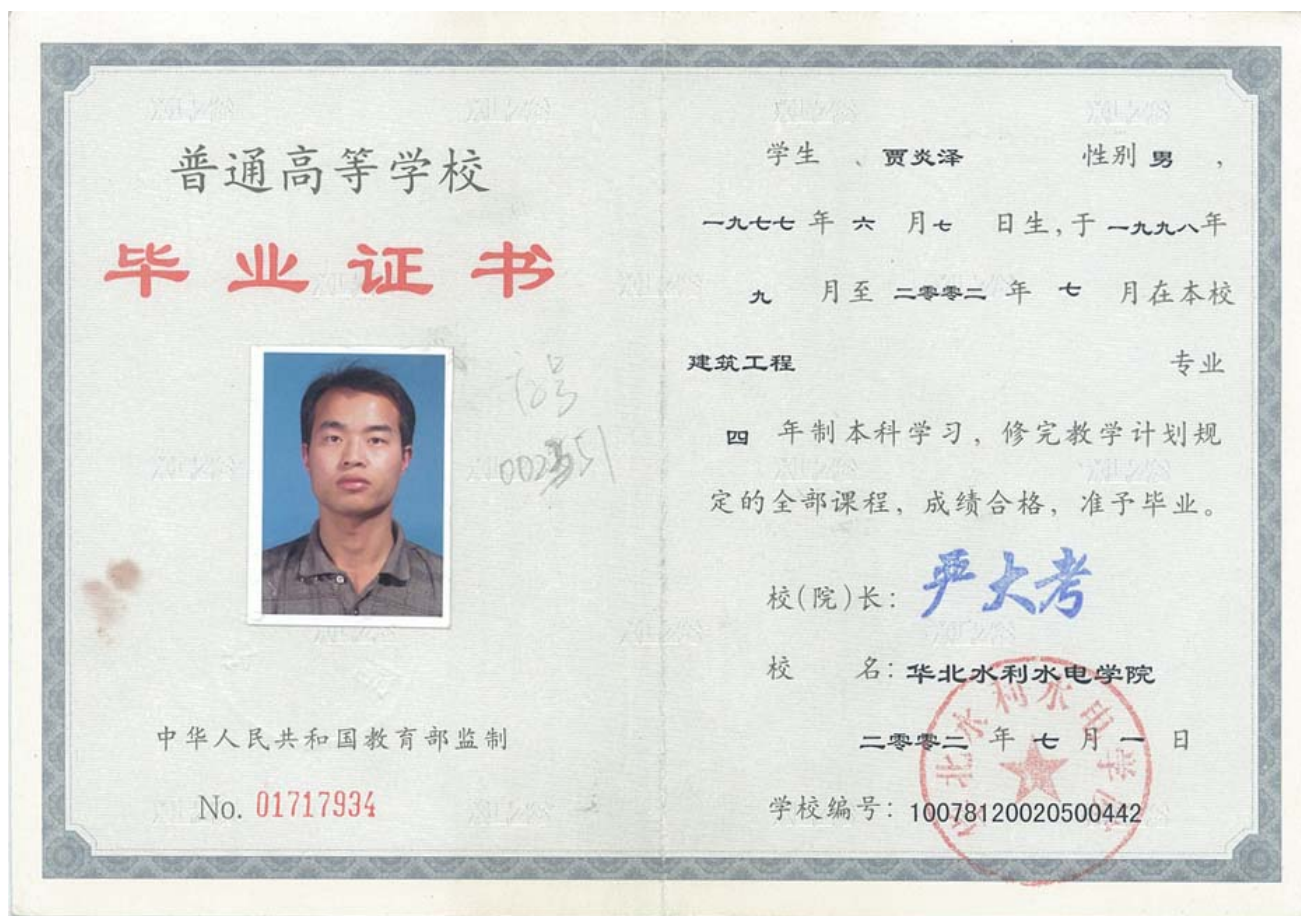 普通高等学校
毕业证书
号
中华人民共和国教育部监制
No. 01717934
学生 、 贾炎泽 性别 男 ,
一九七七 年 六 月 七 日生,于 一九九八 年
九 月至 二零零二 年 七 月在本校
建筑工程 专业
四 年制本科学习，修完教学计划规
定的全部课程，成绩合格，准予毕业。
校(院)长: 严大考
校 名: 华北水利水电学院
二零零二 年 七 月 一 日
学校编号: 10078120020500442
华北水利水电学院